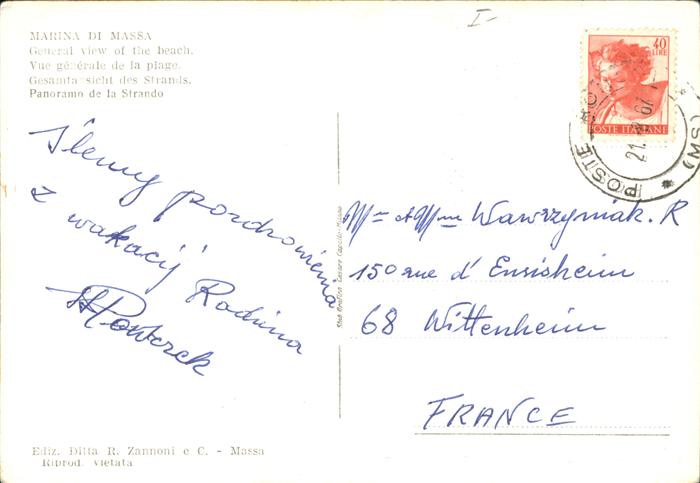 I-
MARINA DI MASSA
General view of the beach.
Vue générale de la plage.
Gesamtansicht des Strands.
Panoramo de la Strando
40
LIRE
POSTE ITALIANE
POSTE
21.
67
Ślemy pozdrowienia
z wakacij
Rodzina
Mr = et Mme Wawrzyniak. R
150 rue d' Ensisheim
68 Wittenheim
FRANCE
Ediz. Ditta R. Zannoni e C. - Massa
Riprod. vietata